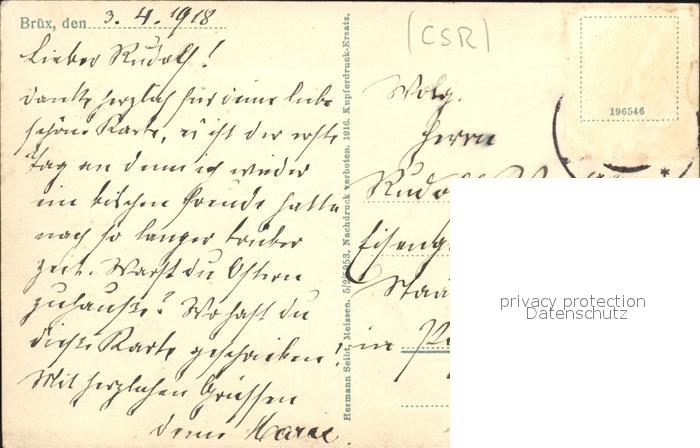 Brüx, den 3. 4. 1918
Lieber Rudolf!
danke herzlich für deine liebe
schöne Karte, es ist der erste
Tag an dem ich wieder
ein bischen Freude hatte
nach so langer trüber
Zeit. Warst du Ostern
zuhause? Wo hast du
diese Karte geschrieben!
Mit herzlichen Grüssen
deine Marie.
Hermann Seibt, Meissen. Nachdruck verboten. 1916. Kupferdruck-Ersatz.
(CSR)
196546
Wolg.
Herrn
Rudolf
Eiseng
Staa
in
privacy protection
Datenschutz